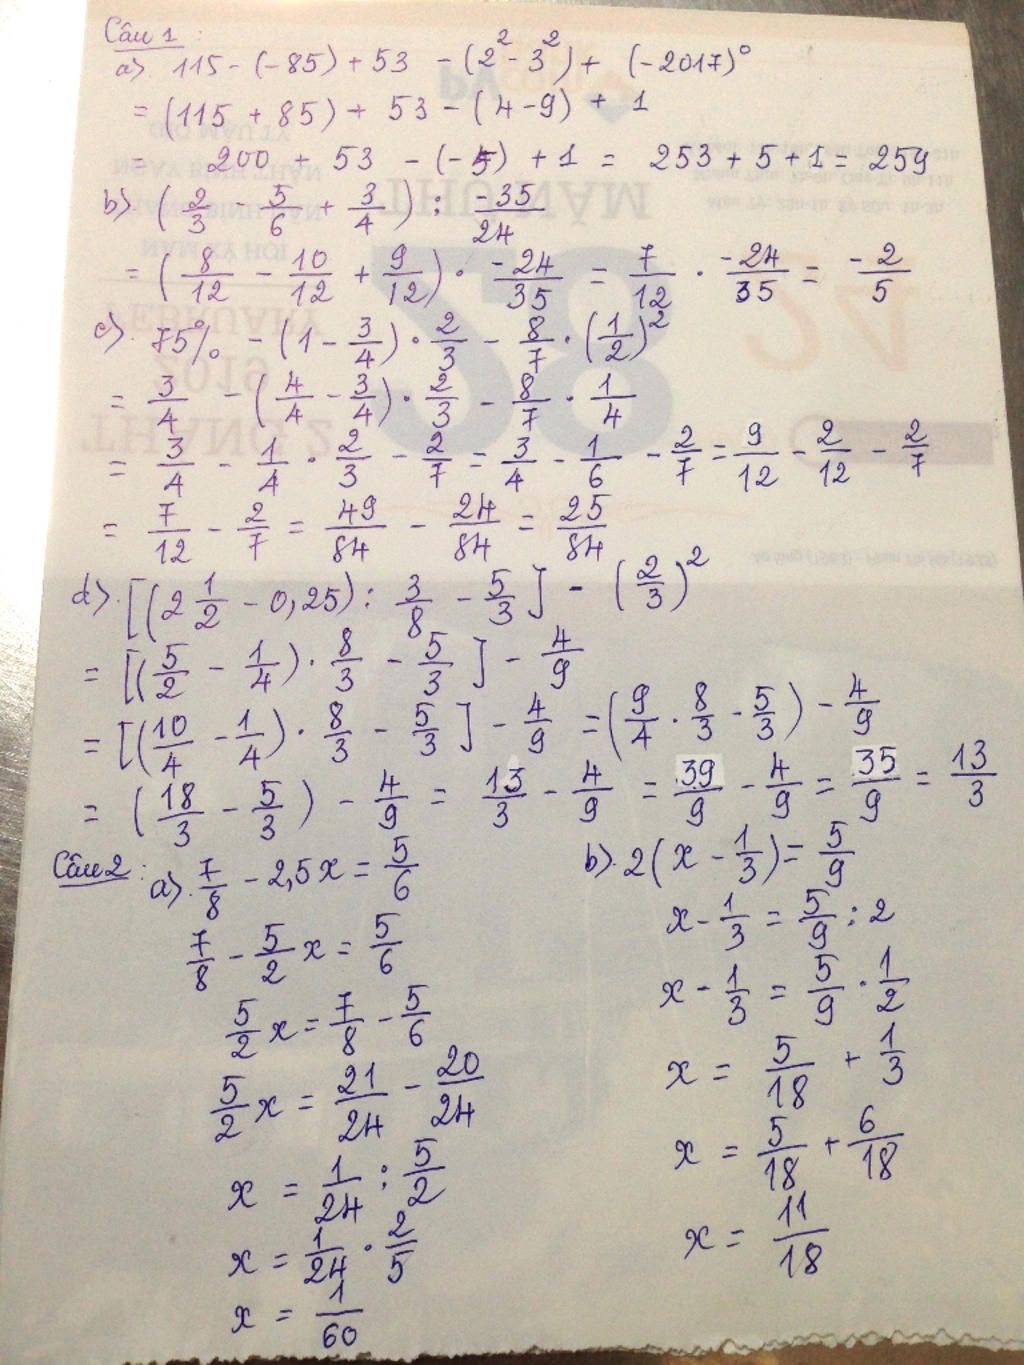 Câu 1 :
a) 115 - (-85) + 53 - (2² - 3²) + (-2017)⁰
= (115 + 85) + 53 - (4 - 9) + 1
= 200 + 53 - (-5) + 1 = 253 + 5 + 1 = 259
b) (2/3 - 5/6 + 3/4) : -35/24
= (8/12 - 10/12 + 9/12) · -24/35 = 7/12 · -24/35 = -2/5
c) 75% - (1 - 3/4) · 2/3 - 8/7 · (1/2)²
= 3/4 - (4/4 - 3/4) · 2/3 - 8/7 · 1/4
= 3/4 - 1/4 · 2/3 - 2/7 = 3/4 - 1/6 - 2/7 = 9/12 - 2/12 - 2/7
= 7/12 - 2/7 = 49/84 - 24/84 = 25/84
d) [(2 1/2 - 0,25) : 3/8 - 5/3] - (2/3)²
= [(5/2 - 1/4) · 8/3 - 5/3] - 4/9
= [(10/4 - 1/4) · 8/3 - 5/3] - 4/9 = (9/4 · 8/3 - 5/3) - 4/9
= (18/3 - 5/3) - 4/9 = 13/3 - 4/9 = 39/9 - 4/9 = 35/9 = 13/3
Câu 2 : a) 7/8 - 2,5x = 5/6
7/8 - 5/2 x = 5/6
5/2 x = 7/8 - 5/6
5/2 x = 21/24 - 20/24
x = 1/24 : 5/2
x = 1/24 · 2/5
x = 1/60
b) 2(x - 1/3) = 5/9
x - 1/3 = 5/9 : 2
x - 1/3 = 5/9 · 1/2
x = 5/18 + 1/3
x = 5/18 + 6/18
x = 11/18